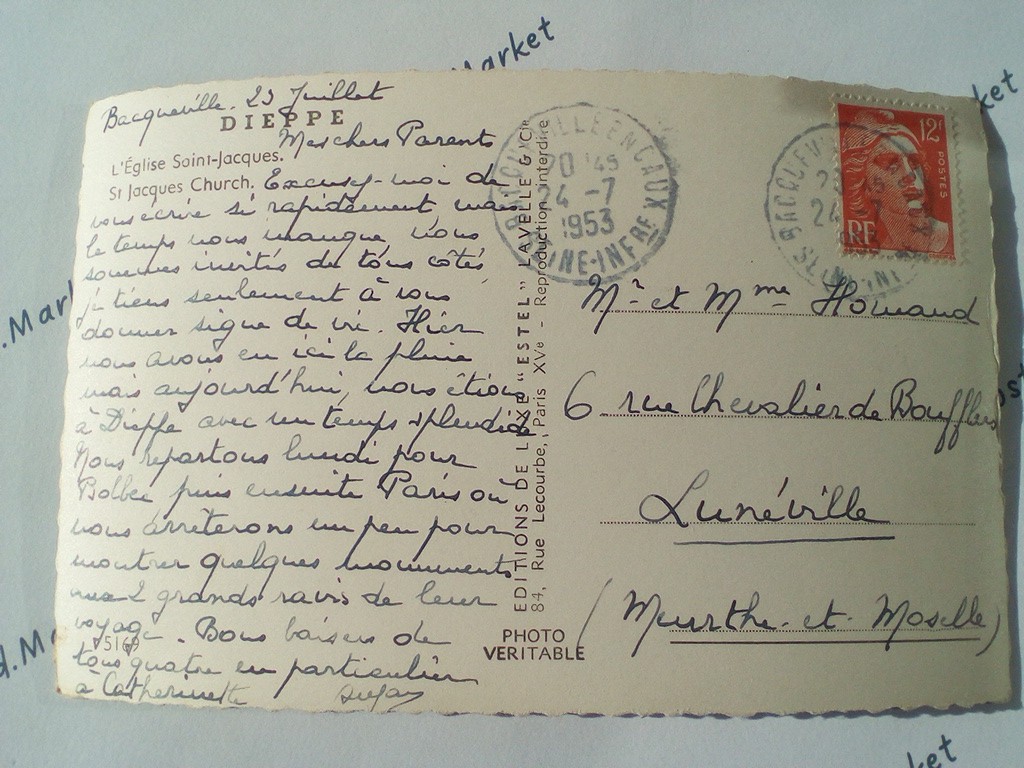 Bacqueville. 23 Juillet
DIEPPE
Mes chers Parents
L'Église Saint-Jacques.
St Jacques Church.
Excusez-moi de
vous écrire si rapidement, mais
le temps nous manque, nous
sommes invités de tous côtés,
je tiens seulement à vous
donner signe de vie. Hier
nous avons eu ici la pluie
mais aujourd'hui, nous étions
à Dieppe avec un temps splendide
Nous repartons lundi pour
Bolbec puis ensuite Paris où
nous arrêterons un peu pour
montrer quelques monuments
aux 2 grands ravis de leur
voyage. Bons baisers de
tous quatre en particulier
à Catherinette
5169
EDITIONS DE LUXE "ESTEL" LAVELLE & Cie
84, Rue Lecourbe, Paris XVe - Reproduction interdite
PHOTO
VERITABLE
BACQUEVILLE EN CAUX
20 45
24 -7
1953
SEINE-INFRE
12F
POSTES
RF
Mr et Mme Houaud
6 rue Chevalier de Boufflers
Lunéville
(Meurthe-et-Moselle)
Market
ket
.Mar
d.Ma
ost
ket